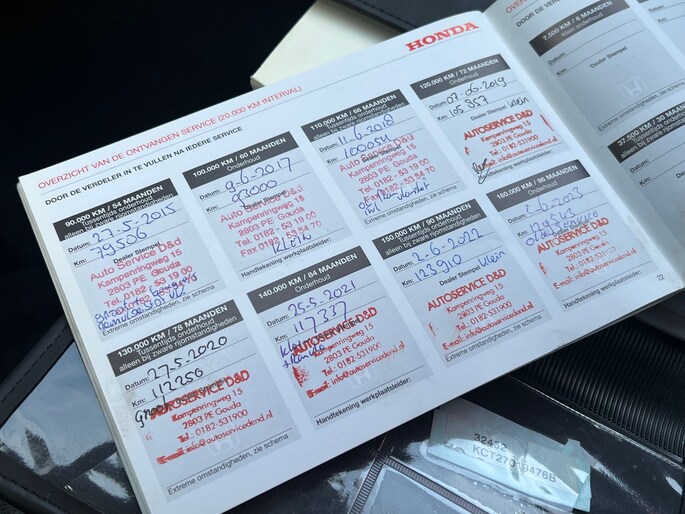 HONDA
OVERZICHT VAN DE ONTVANGEN SERVICE (20.000 KM INTERVAL)
DOOR DE VERDELER IN TE VULLEN NA IEDERE SERVICE
90.000 KM / 54 MAANDEN
Tussentijds onderhoud
alleen bij zware rijomstandigheden
Datum: 27-5-2015
Km: 79506
Dealer Stempel
Auto Service D&D
Kampenringweg 15
2803 PE Gouda
Tel. 0182 - 53 19 00
Extreme omstandigheden, zie schema
100.000 KM / 60 MAANDEN
Onderhoud
Datum: 9-6-2017
Km: 93000
Auto Service D&D
Kampenringweg 15
2803 PE Gouda
Tel. 0182 - 53 19 00
Fax 0182 - 53 54 70
KLEIN
Handtekening werkplaatsleider:
110.000 KM / 66 MAANDEN
Tussentijds onderhoud
alleen bij zware rijomstandigheden
Datum: 11-6-2018
Km: 100054
Auto Service D&D
Kampenringweg 15
2803 PE Gouda
Tel. 0182 - 53 19 00
Fax 0182 - 53 54 70
Extreme omstandigheden, zie schema
120.000 KM / 72 MAANDEN
Onderhoud
Datum: 07-06-2019
Km: 105357
Dealer Stempel klein
AUTOSERVICE D&D
Kampenringweg 15
2803 PE Gouda
Tel.: 0182-531900
130.000 KM / 78 MAANDEN
Tussentijds onderhoud
alleen bij zware rijomstandigheden
Datum: 27-5-2020
Km: 112250
AUTOSERVICE D&D
Kampenringweg 15
2803 PE Gouda
Tel.: 0182-531900
E-mail: info@autoservicedend.nl
Extreme omstandigheden, zie schema
140.000 KM / 84 MAANDEN
Onderhoud
Datum: 25-5-2021
Km: 117337
AUTOSERVICE D&D
Kampenringweg 15
2803 PE Gouda
Tel.: 0182-531900
E-mail: info@autoservicedend.nl
Handtekening werkplaatsleider:
150.000 KM / 90 MAANDEN
Tussentijds onderhoud
alleen bij zware rijomstandigheden
Datum: 2-6-2022
Km: 123910
Dealer Stempel klein
AUTOSERVICE D&D
Kampenringweg 15
2803 PE Gouda
Tel.: 0182-531900
E-mail: info@autoservicedend.nl
Extreme omstandigheden, zie schema
160.000 KM / 96 MAANDEN
Onderhoud
Datum: 1-6-2023
Km:
AUTOSERVICE D&D
Kampenringweg 15
2803 PE Gouda
E-mail: info@autoservicedend.nl
Handtekening werkplaatsleider:
22
DOOR DE VERDE
7.500 KM / 6 MAANDEN
Klein onderhoud
Datum:
Km:
Dealer Stempel
37.500 KM / 30 MAANDEN
Klein onderhoud
Datum:
Km:
32452
KCT270-9476B